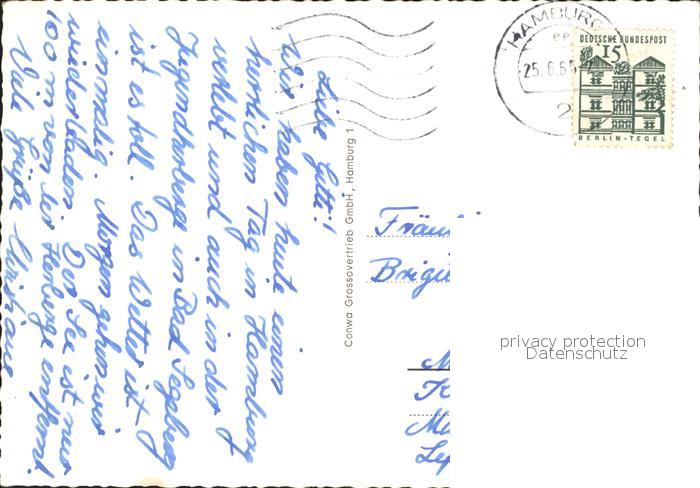 Liebe Gitti!
Wir haben heute einen
herrlichen Tag in Hamburg
verlebt und auch in der
Jugendherberge in Bad Segeberg
ist es toll. Das Wetter ist
einmalig. Morgen gehen wir
wieder baden. Der See ist nur
100 m von der Herberge entfernt.
Viele Grüße
Conwa Grossovertrieb GmbH, Hamburg 1
HAMBURG
25.6.6
2
DEUTSCHE BUNDESPOST
15
BERLIN-TEGEL
Fräul
Brigi
privacy protection
Datenschutz